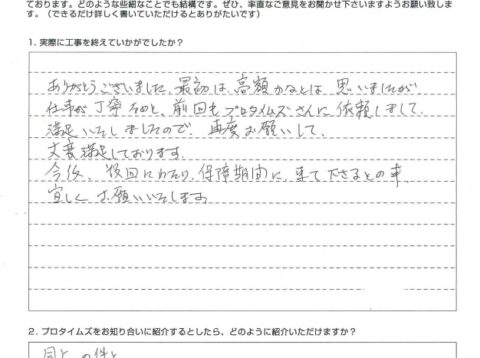 ております。どのような些細なことでも結構です。ぜひ、率直なご意見をお聞かせ下さいますようお願い致しま
す。（できるだけ詳しく書いていただけるとありがたいです）
1. 実際に工事を終えていかがでしたか？
ありがとうございました。最初は、高額かなとは 思いましたが
仕事が丁寧なのと、前回もプロタイムズさんに依頼しまして、
満足いたしましたので、再度お願いして、
大変満足しております。
今後、数回にわたり、保障期間に、来て下さるとの事、
宜しくお願いいたします。
2. プロタイムズをお知り合いに紹介するとしたら、どのように紹介いただけますか？